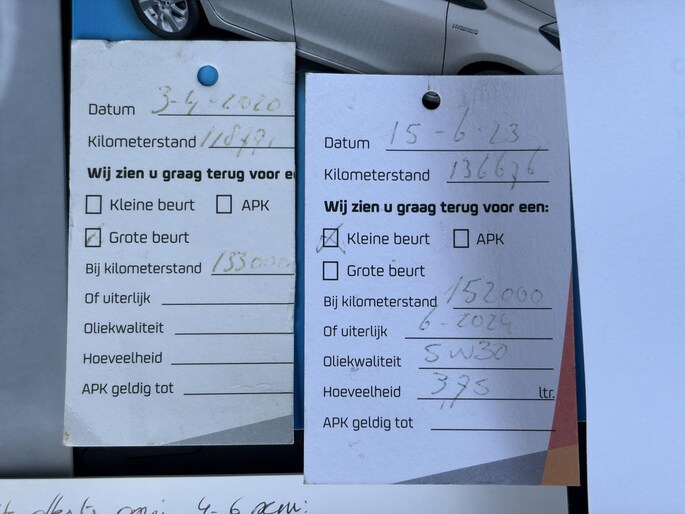 HYBRID
Datum 3-4-2020
Kilometerstand
Wij zien u graag terug voor
Kleine beurt APK
Grote beurt
Bij kilometerstand 133000
Of uiterlijk
Oliekwaliteit
Hoeveelheid
APK geldig tot
Datum 15-6-23
Kilometerstand 136676
Wij zien u graag terug voor een:
Kleine beurt APK
Grote beurt
Bij kilometerstand 152000
Of uiterlijk 6-2024
Oliekwaliteit 5W30
Hoeveelheid 3,75 ltr.
APK geldig tot
4-6